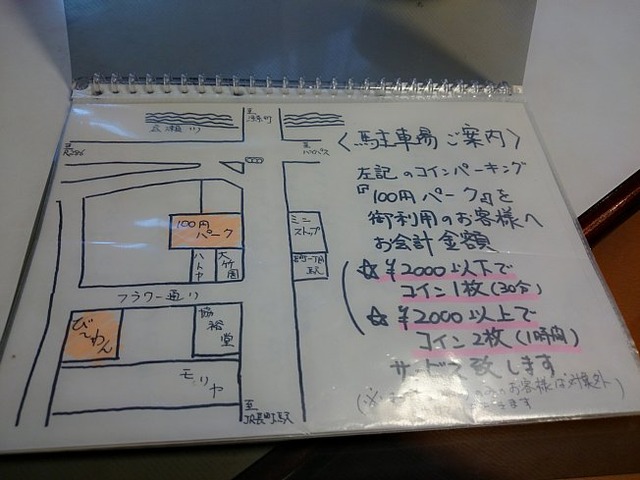 広瀬川
至
至
至
バイパス
100円
パーク
ハトヤ
大竹園
ミニ
ストップ
駅
フラワー通り
び〜わん
協裕堂
モリヤ
至
JR長町駅
〈駐車場ご案内〉
左記のコインパーキング
『100円パーク』を
御利用のお客様へ
お会計金額
☆¥2000以下で
コイン1枚(30分)
☆¥2000以上で
コイン2枚(1時間)
サービス致します
お客様は対象外